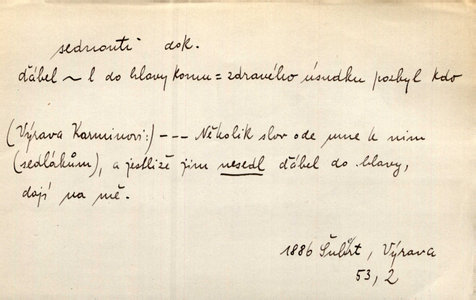 sednouti dok.
ďábel ~ l do hlavy komu = zdravého úsudku pozbyl kdo
(Výrava Karminovi:) --- Několik slov ode mne k nim
(sedlákům), a jestliže jim nesedl ďábel do hlavy,
dají na mě.
1886 Šubrt, Výrava
53, 2